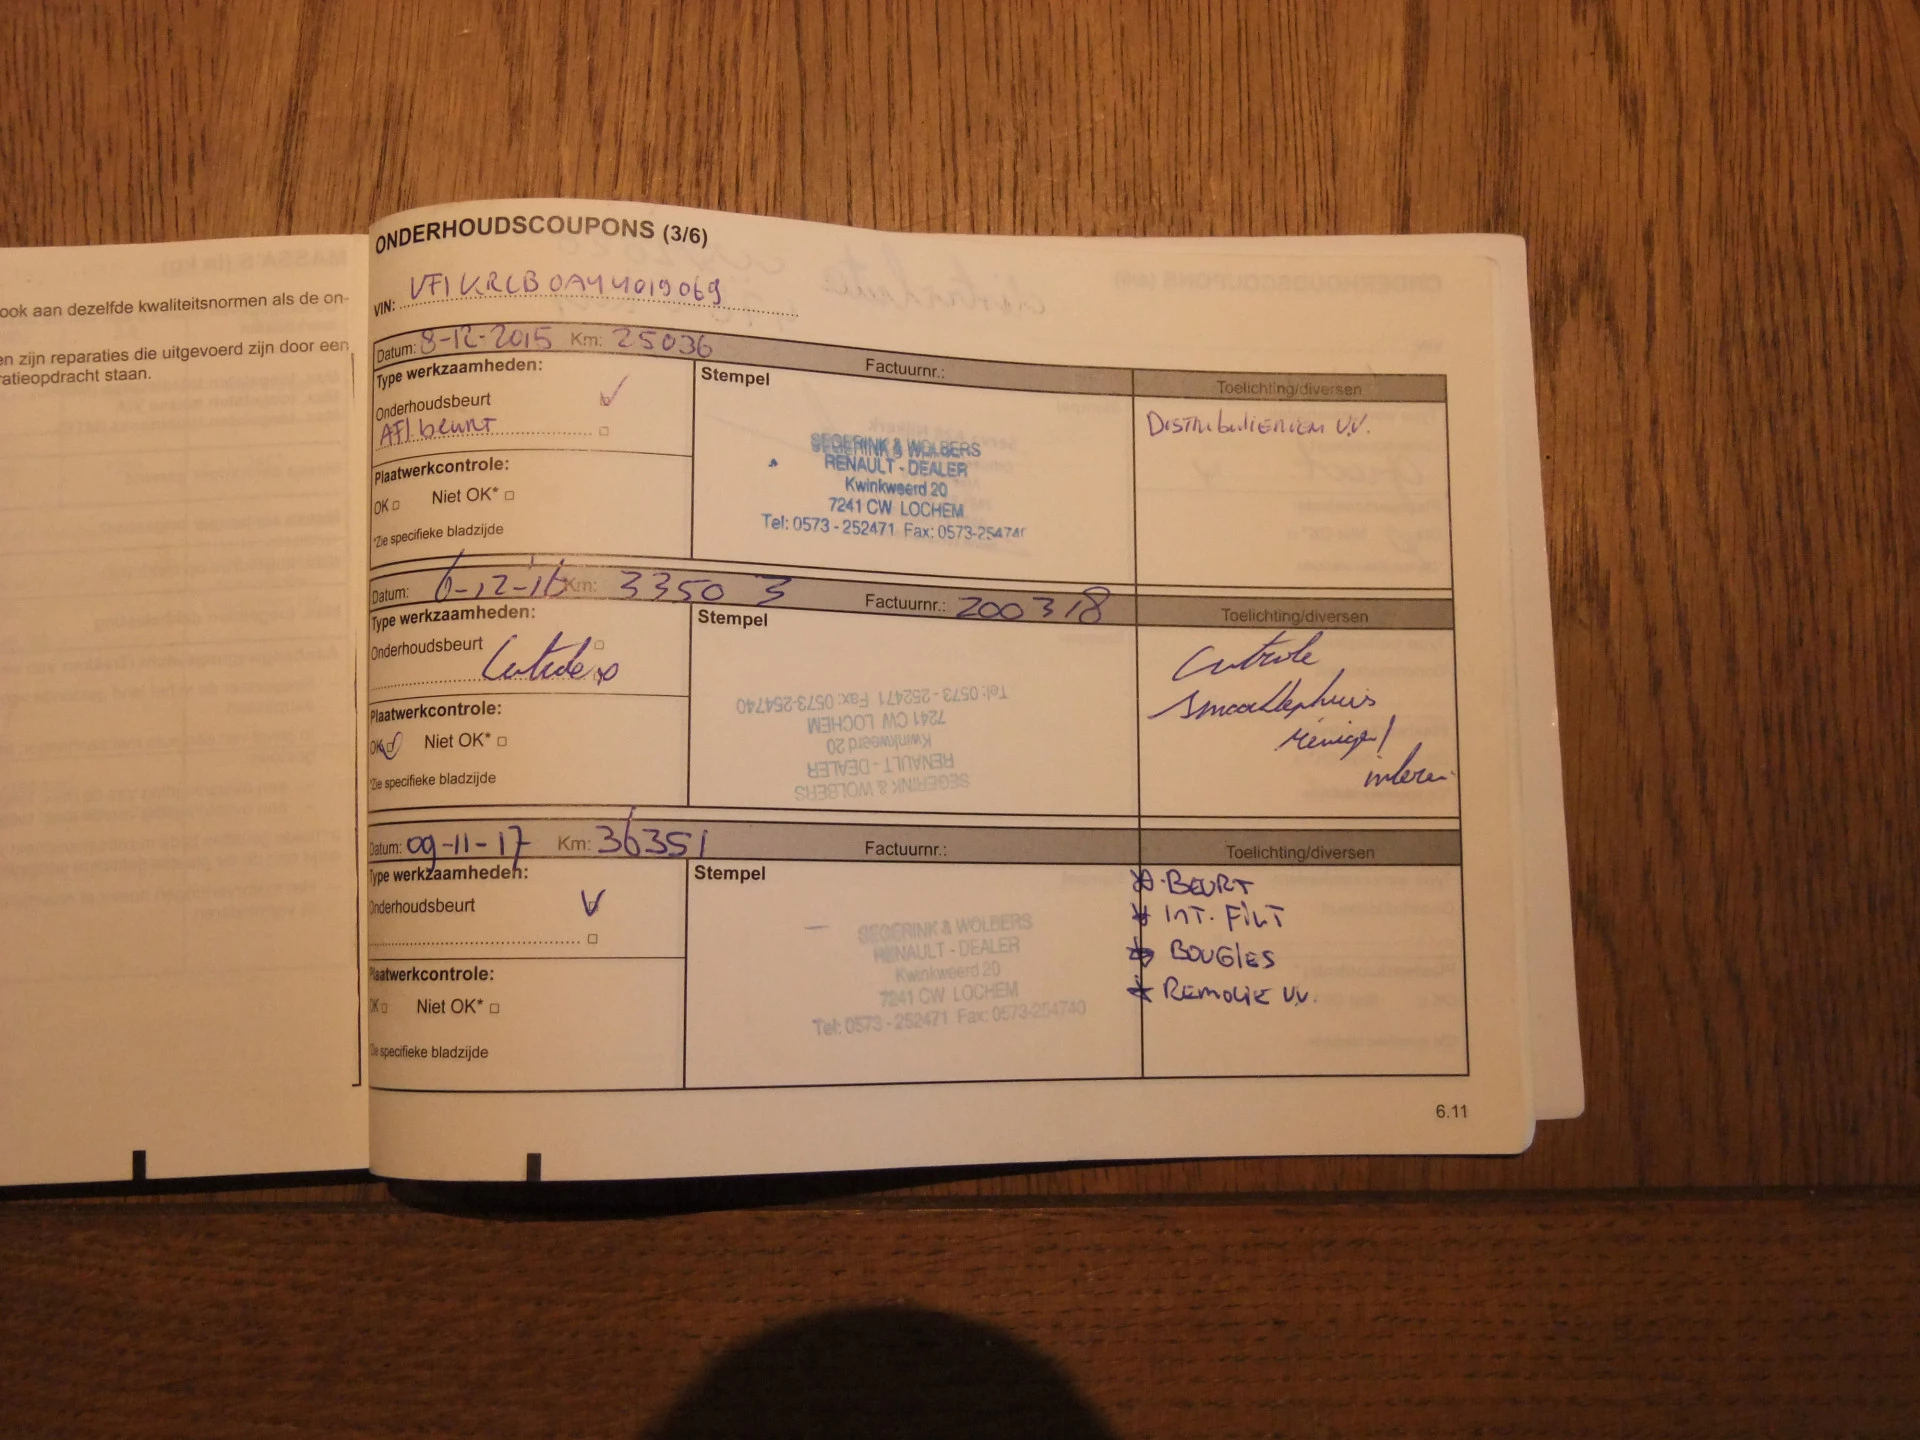 ook aan dezelfde kwaliteitsnormen als de on-
en zijn reparaties die uitgevoerd zijn door een
ratieopdracht staan.
ONDERHOUDSCOUPONS (3/6)
VIN: VF1KRCB0A44019069
Datum: 8-12-2015 Km: 25036 Factuurnr.: Toelichting/diversen
Type werkzaamheden:
Onderhoudsbeurt
Afl. beurt
Plaatwerkcontrole:
OK Niet OK*
*Zie specifieke bladzijde
Stempel
SEGERINK & WOLBERS
RENAULT - DEALER
Kwinkweerd 20
7241 CW LOCHEM
Tel: 0573 - 252471 Fax: 0573-254740
DISTRIBUTIERIEM V.V.
Datum: 6-12-16 Km: 33503 Factuurnr.: 200318 Toelichting/diversen
Type werkzaamheden:
Onderhoudsbeurt
Plaatwerkcontrole:
OK Niet OK*
*Zie specifieke bladzijde
Stempel
SEGERINK & WOLBERS
RENAULT - DEALER
Kwinkweerd 20
7241 CW LOCHEM
Tel: 0573 - 252471 Fax: 0573-254740
Controle
Datum: 09-11-17 Km: 36351 Factuurnr.: Toelichting/diversen
Type werkzaamheden:
Onderhoudsbeurt
Plaatwerkcontrole:
OK Niet OK*
*Zie specifieke bladzijde
Stempel
SEGERINK & WOLBERS
RENAULT - DEALER
Kwinkweerd 20
7241 CW LOCHEM
Tel: 0573 - 252471 Fax: 0573-254740
* BEURT
* INT. FILT
* BOUGIES
* REMOLIE V.V.
6.11